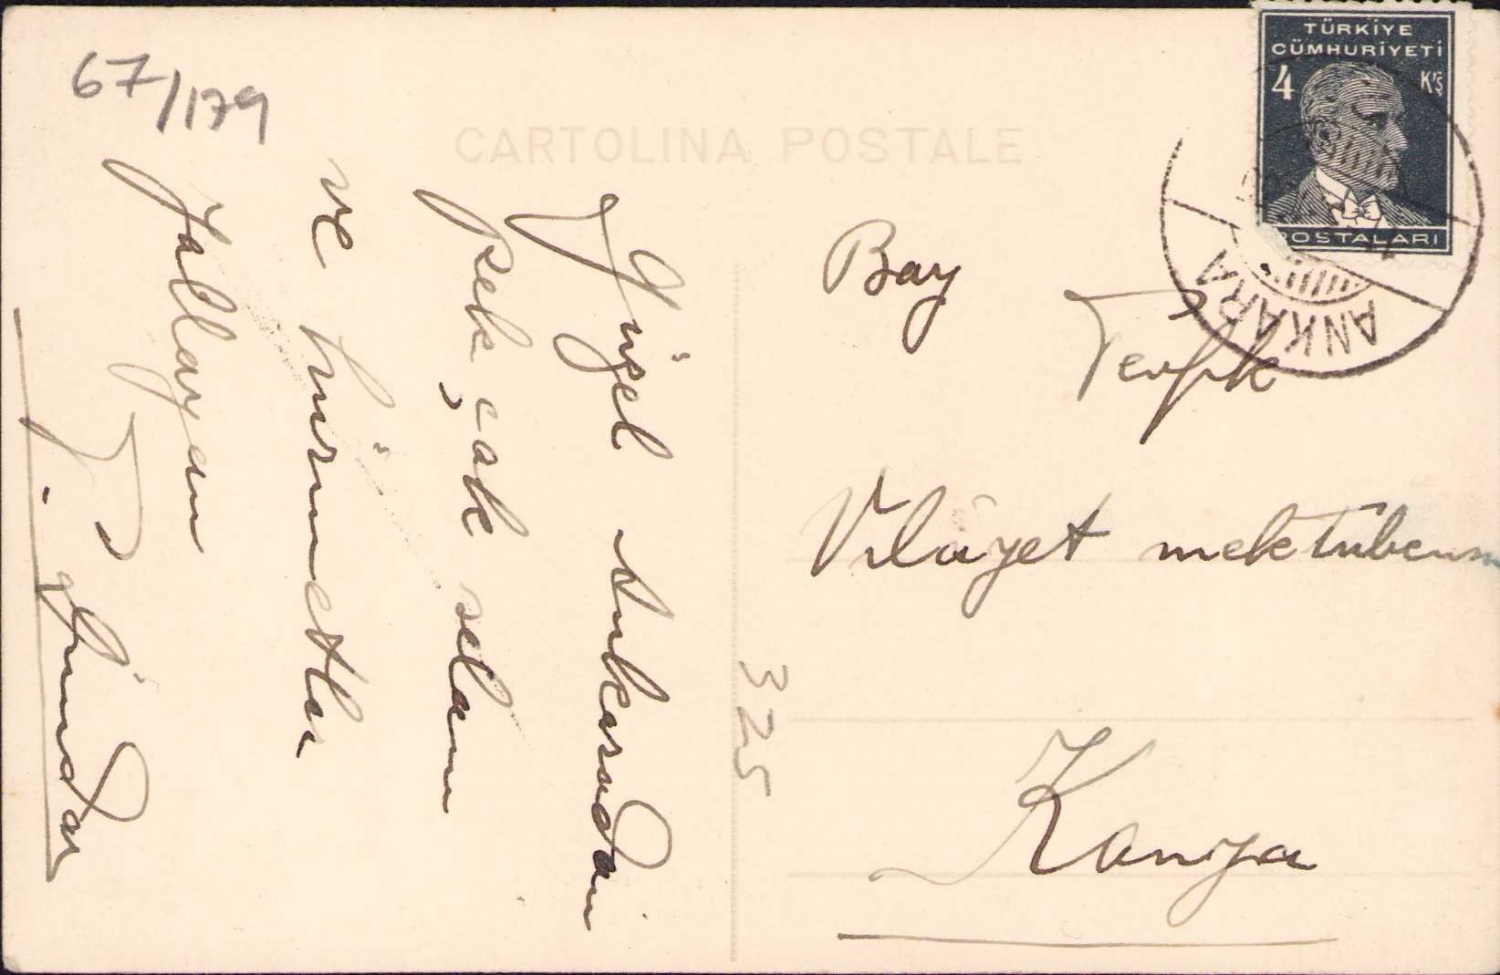 67/179
CARTOLINA POSTALE
TÜRKİYE
CÜMHURİYETİ
4 K'Ş
POSTALARI
ANKARA
Güzel Ankaradan
pek çok selam
ve hürmetler
Yollayan
Dündar
Bay
Tevfik
Vilâyet mektubcusu
Konya
325